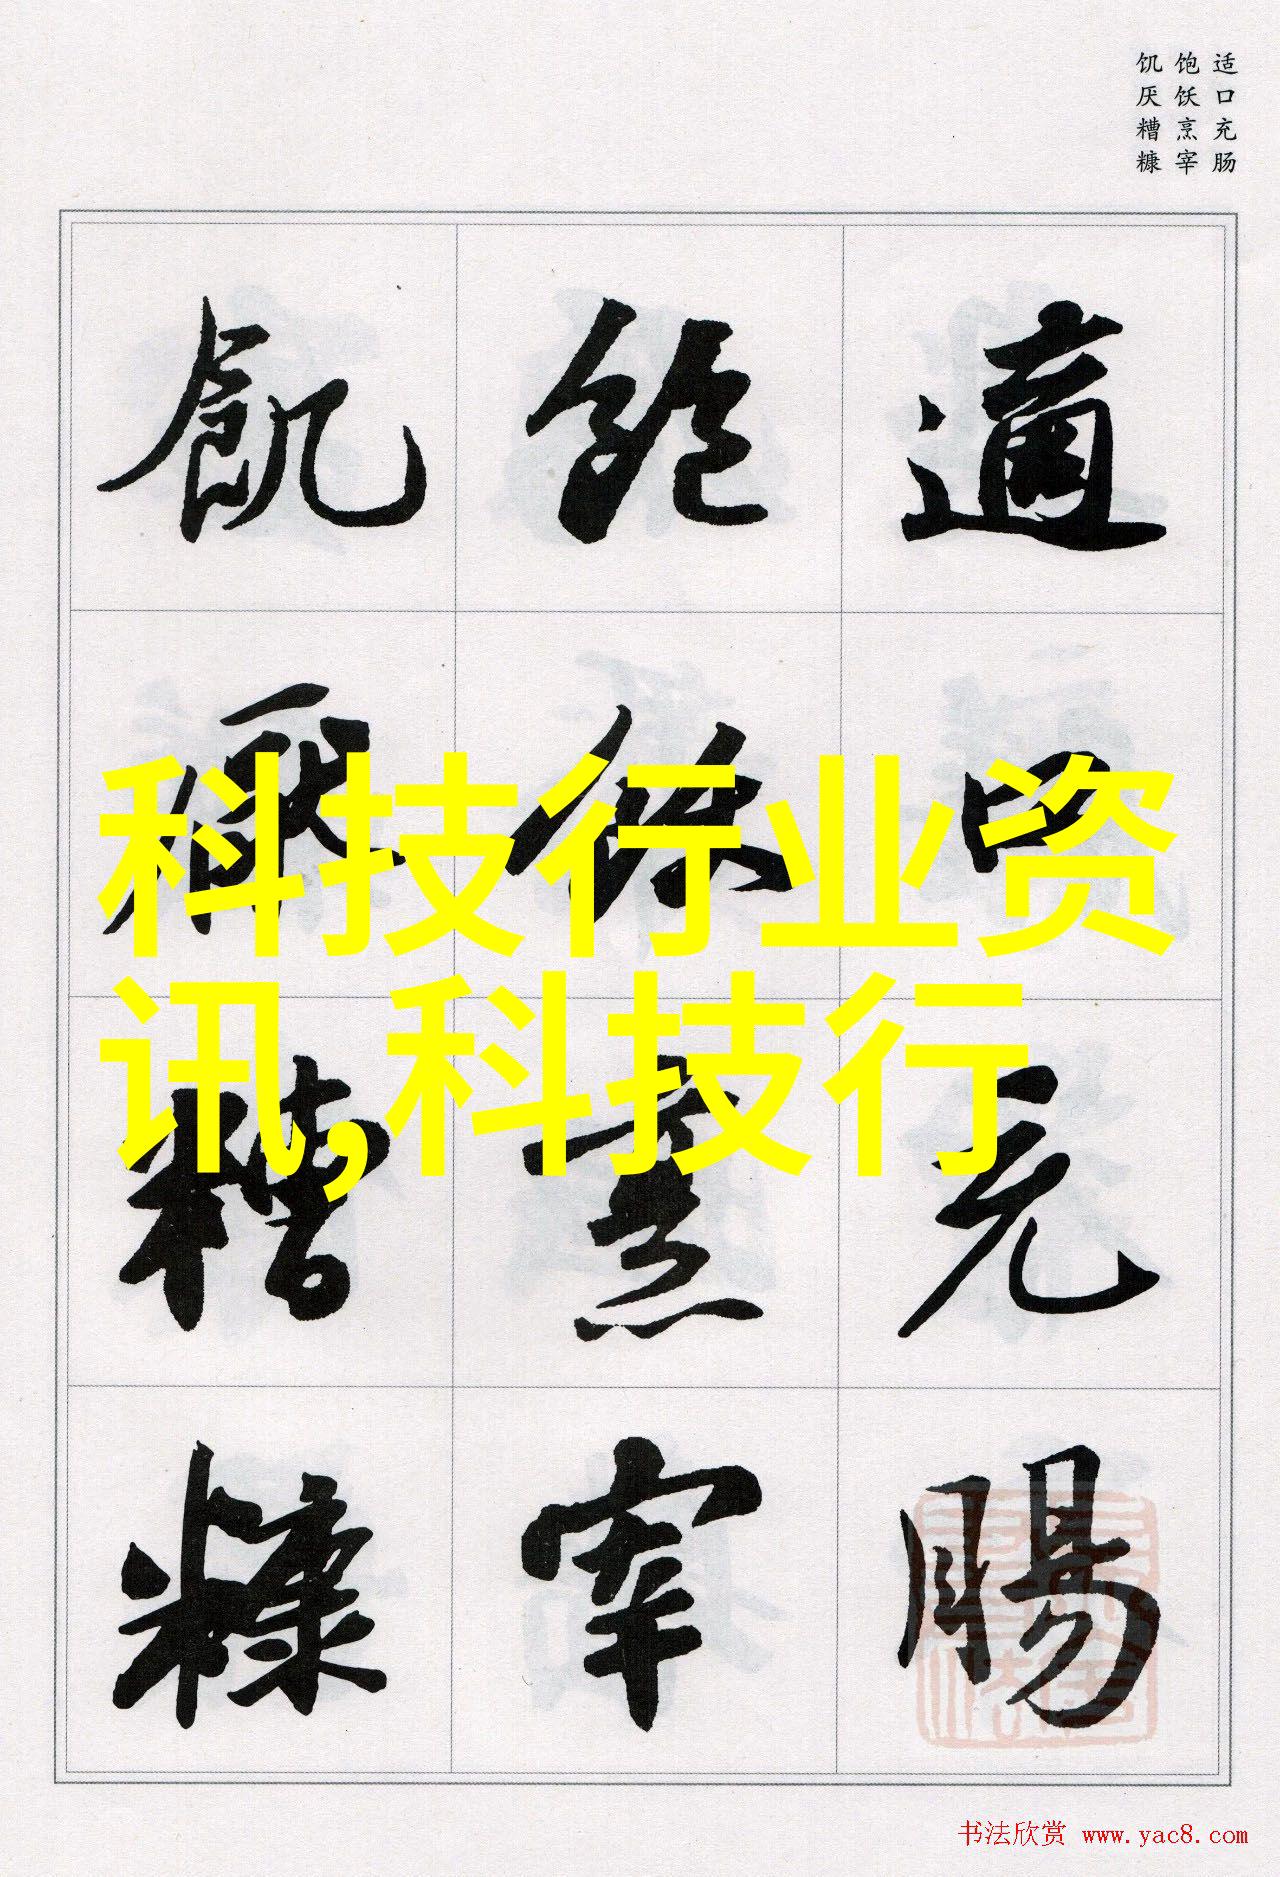 适口充肠
饱饫烹宰
饥厌糟糠
適口充腸
飽飫烹宰
飢厭糟糠
科技行业资
讯,科技行
书法欣赏 www.yac8.com